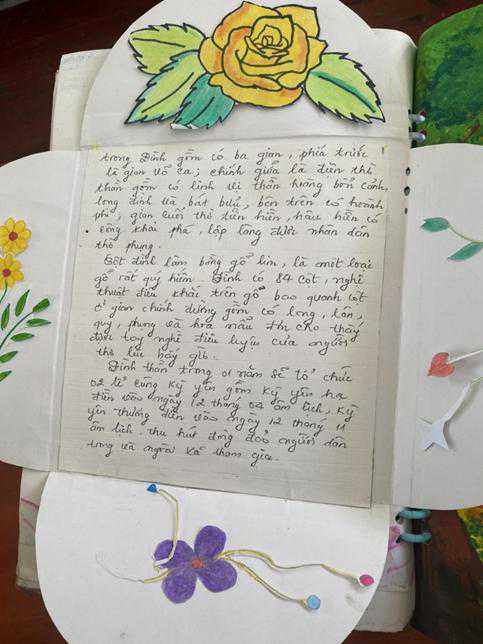 trong Đình gồm có ba gian, phía trước
là gian võ ca; chính giữa là điện thờ
thần gồm có linh vị thần hoàng bổn cảnh,
long đình và bát bửu, bên trên có hoành
phi, gian cuối thờ tiền hiền, hậu hiền có
công khai phá, lập làng được nhân dân
thờ phụng.
Cột đình làm bằng gỗ lim, là một loại
gỗ rất quý hiếm. Đình có 84 cột, nghệ
thuật điêu khắc trên gỗ bao quanh cột
ở gian chính đường gồm có long, lân,
quy, phụng và hoa mẫu đơn cho thấy
được tay nghề điêu luyện của người
thợ lúc bấy giờ.
Đình thần trong 01 năm sẽ tổ chức
02 lễ cúng kỳ yên gồm kỳ yên hạ
điền vào ngày 12 tháng 04 âm lịch, kỳ
yên thượng điền vào ngày 12 tháng 11
âm lịch. thu hút đông đảo người dân
trong và ngoài xã tham gia.